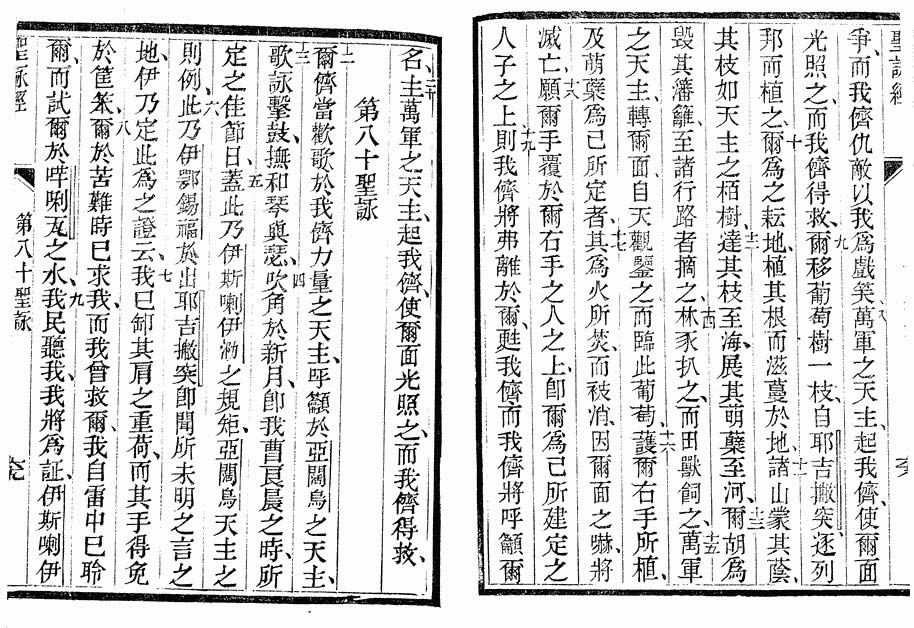 聖詠經
爭、而我儕仇敵以我爲戲笑、八萬軍之天主、起我儕、使爾面
光照之、而我儕得救、九爾移葡萄樹一枝、自耶吉撇突、逐列
邦而植之、十爾爲之耘地、植其根而滋蔓於地、十一諸山蒙其蔭、
其枝如天主之栢樹、十二達其枝至海、展其萌蘖至河、十三爾胡爲
毀其籓籬、至諸行路者摘之、十四林豕扒之、而田獸飼之、十五萬軍
之天主、轉爾面、自天觀鑒之、而臨此葡萄、十六護爾右手所植、
及萌蘖爲己所定者、十七其爲火所焚、而被消、因爾面之嚇、將
滅亡、十八願爾手覆於爾右手之人之上、卽爾爲己所建定之
人子之上、十九則我儕將弗離於爾、甦我儕、而我儕將呼籲爾
名、二十主萬軍之天主、起我儕、使爾面光照之、而我儕得救、
第八十聖詠
二爾儕當歡歌於我儕力量之天主、呼籲於亞闊烏之天主、
三歌詠擊鼓、撫和琴與瑟、四吹角於新月、卽我曹良晨之時、所
定之佳節日、五蓋此乃伊斯喇伊泐之規矩、亞闊烏天主之
則例、六此乃伊鄂錫福於出耶吉撇突卽聞所未明之言之
地、伊乃定此爲之證云、七我已卸其肩之重荷、而其手得免
於筐笨、八爾於苦難時已求我、而我曾救爾、我自雷中已聆
爾、而試爾於咩唎瓦之水、九我民聽我、我將爲証、伊斯喇伊
聖詠經
第八十聖詠